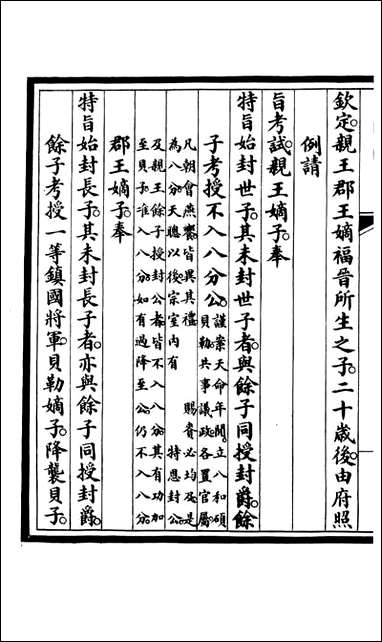 欽定。親王郡王嫡福晉所生之子。二十歲後。由府照
例請
旨考試。親王嫡子。奉
特旨始封世子。其未封世子者。與餘子同授封爵。餘
子考授不入八分公。
謹案天命年間。立八和碩
貝勒。共事議政。各置官屬。
凡朝會燕饗。皆異其禮 賜賚必均。及是
為八分。天聰以後。宗室內有 特恩封公。
及親王餘子授封公者。皆不入八分。其有功加
至貝子。准入八分。如有過降至公。仍不入八分。
郡王嫡子。奉
特旨始封長子。其未封長子者。亦與餘子同授封爵。
餘子考授一等鎮國將軍。貝勒嫡子。降襲貝子。